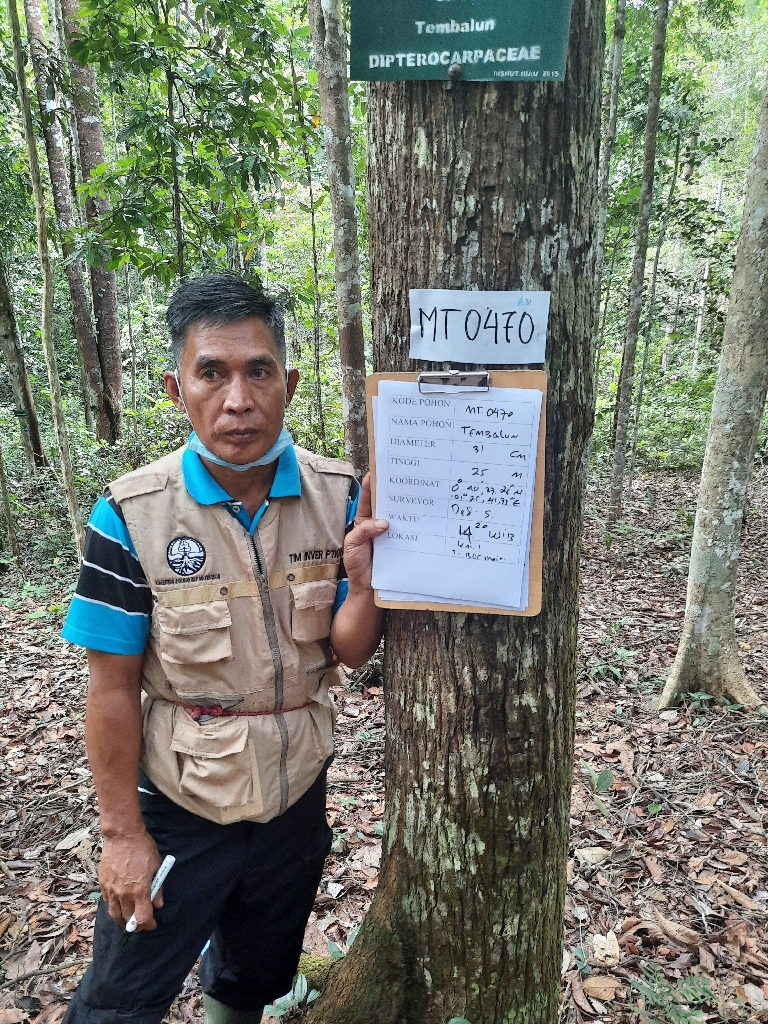 Tembalun
DIPTEROCARPACEAE
DISHUT.RIAU 2013
MT0470
KODE POHON MT 0470
NAMA POHON TEMBALUN
DIAMETER 31 CM
TINGGI 25 M
KOORDINAT
SURVEYOR Deg S
WAKTU 14 20 WIB
LOKASI
TIM INVER